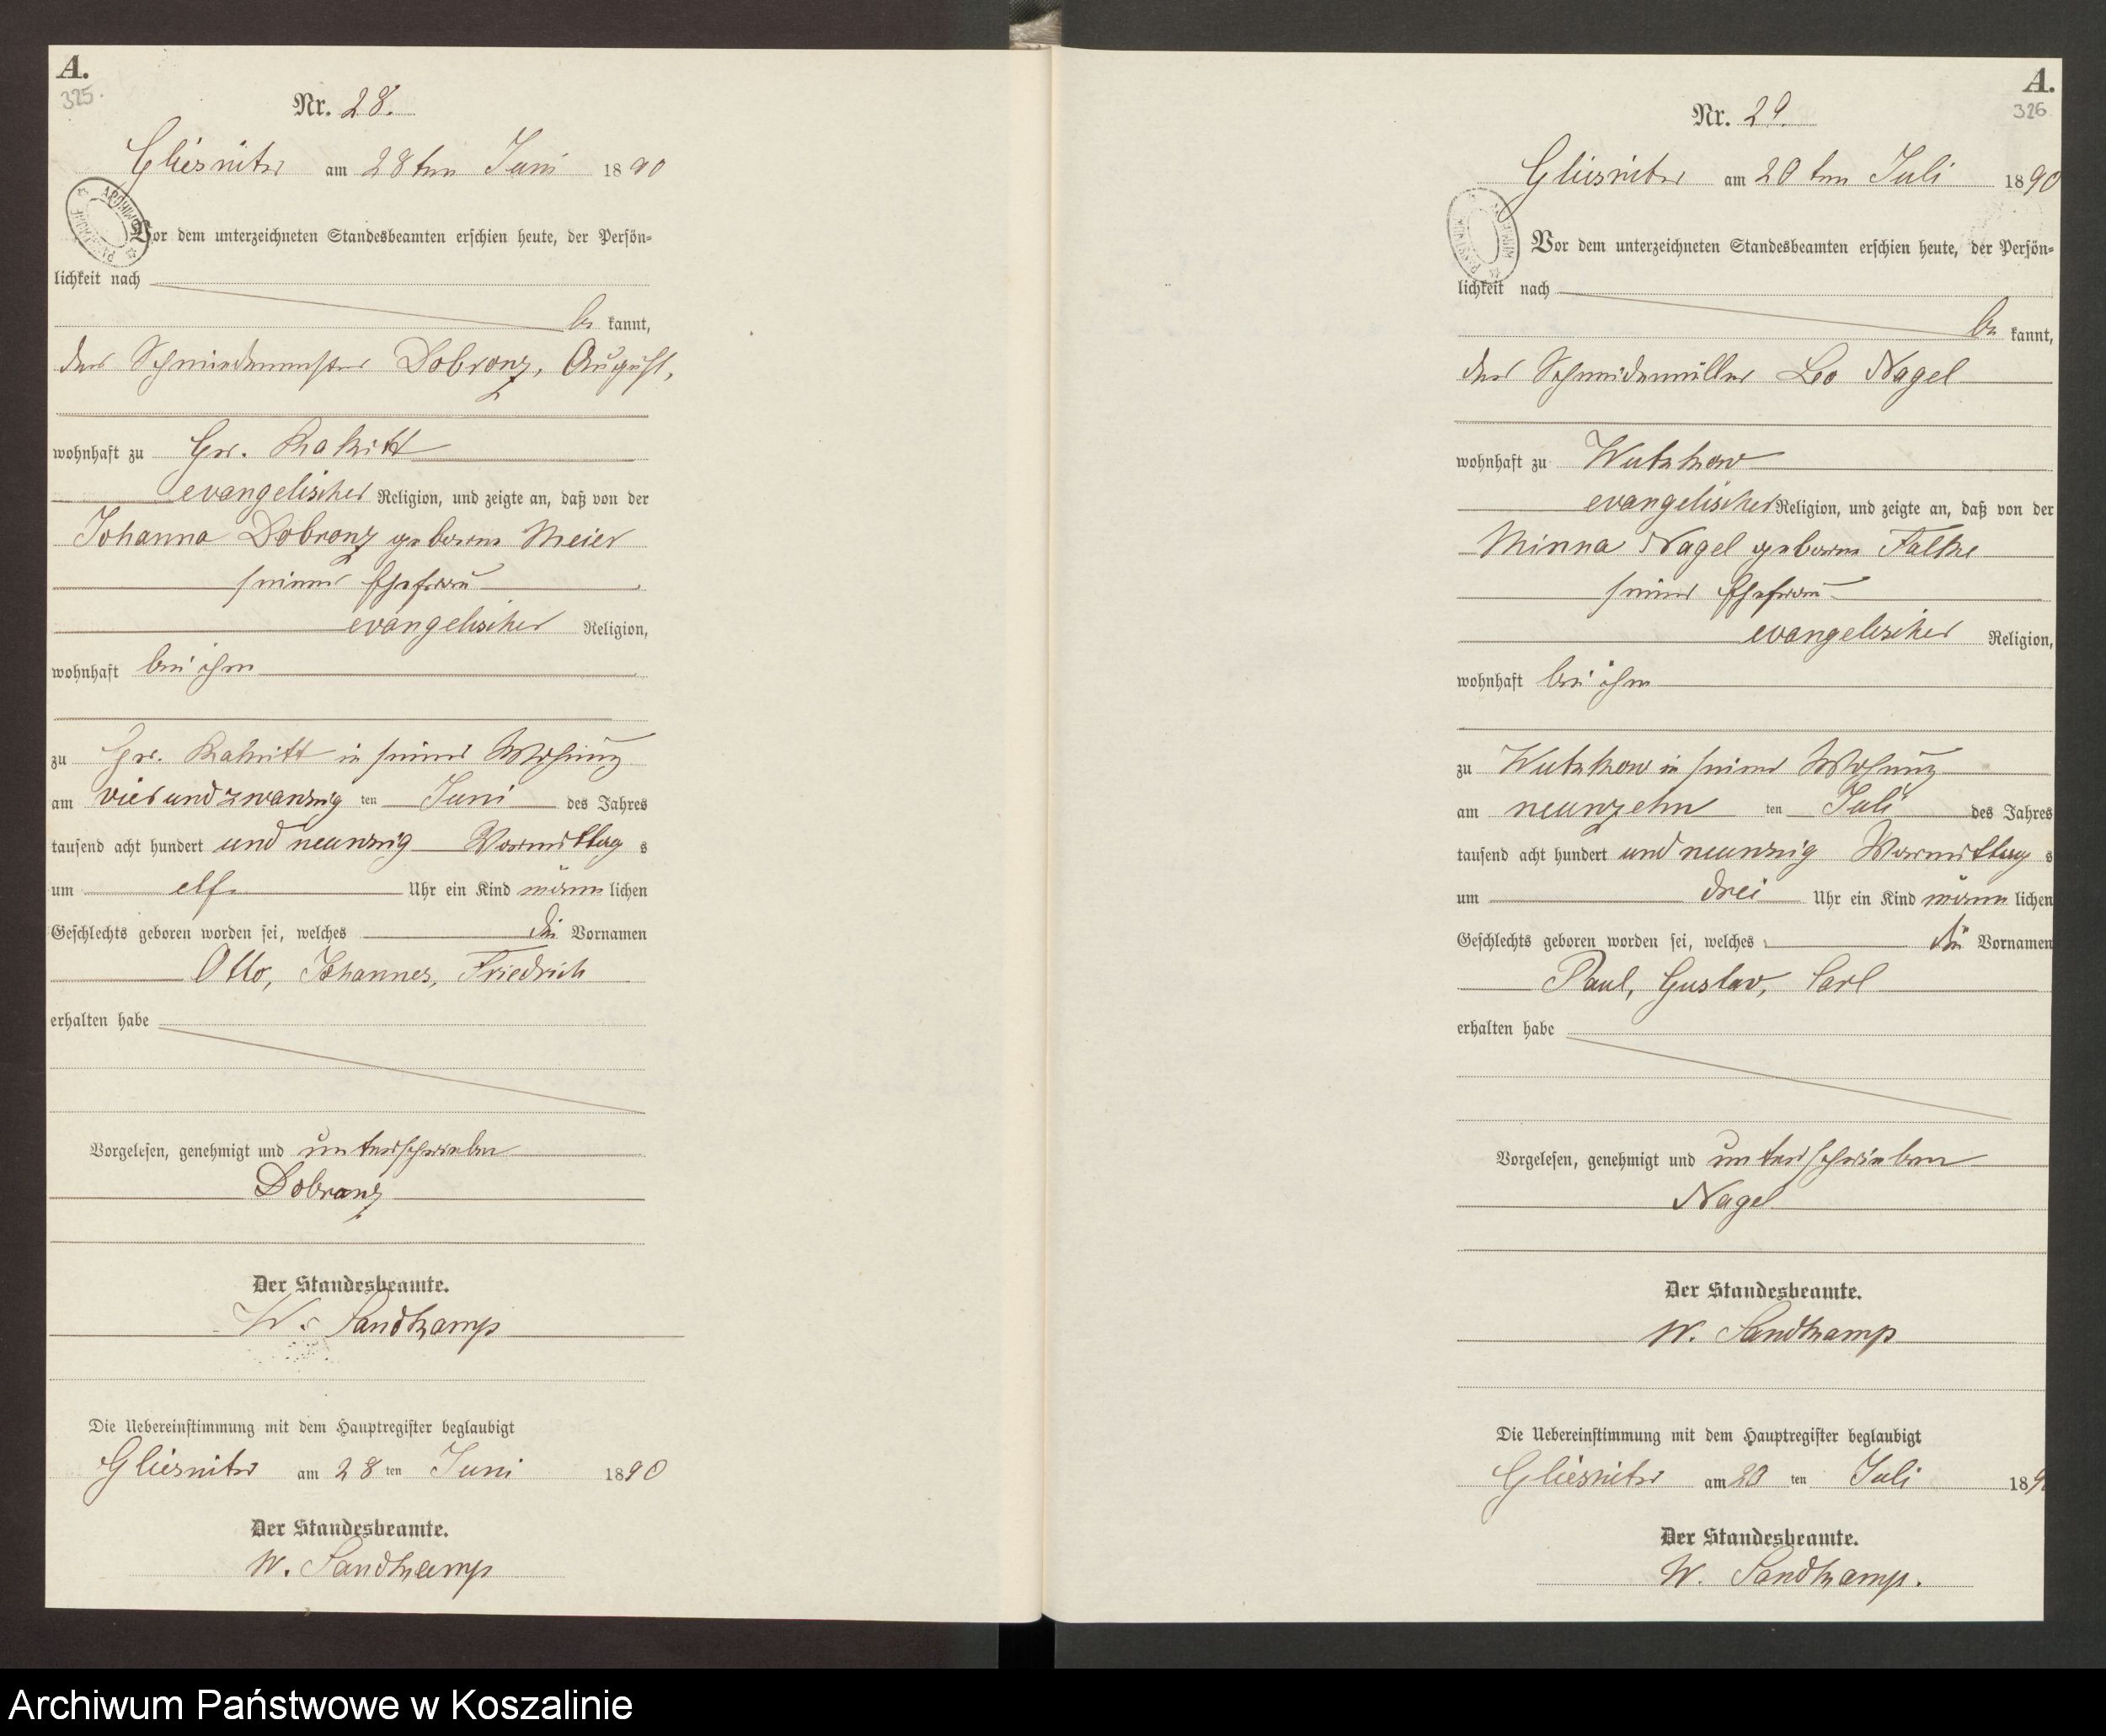 A.
325.
Nr. 28.
Gliesnitz am 28ten Juni 1890
Vor dem unterzeichneten Standesbeamten erschien heute, der Persön-
lichkeit nach
be kannt,
der Schmiedemeister Dobronz, August,
wohnhaft zu Gr. Rakitt
evangelischer Religion, und zeigte an, daß von der
Johanna Dobronz geborene Meier
seiner Ehefrau
evangelischer Religion,
wohnhaft bei ihm
zu Gr. Rakitt in seiner Wohnung
am vierundzwanzig ten Juni des Jahres
tausend acht hundert und neunzig Vormittag s
um elf Uhr ein Kind männ lichen
Geschlechts geboren worden sei, welches die Vornamen
Otto, Johannes, Friedrich
erhalten habe
Vorgelesen, genehmigt und unterschrieben
Dobronz
Der Standesbeamte.
W. Sandkamp
Die Uebereinstimmung mit dem Hauptregister beglaubigt
Gliesnitz am 28 ten Juni 1890
Der Standesbeamte.
W. Sandkamp
A.
326
Nr. 29.
Gliesnitz am 20ten Juli 1890
Vor dem unterzeichneten Standesbeamten erschien heute, der Persön-
lichkeit nach
be kannt,
der Schneidemüller Leo Nagel
wohnhaft zu Wutzkow
evangelischer Religion, und zeigte an, daß von der
Minna Nagel geborene Falke
seiner Ehefrau
evangelischer Religion,
wohnhaft bei ihm
zu Wutzkow in seiner Wohnung
am neunzehn ten Juli des Jahres
tausend acht hundert und neunzig Vormittag s
um drei Uhr ein Kind männ lichen
Geschlechts geboren worden sei, welches die Vornamen
Paul, Gustav, Carl
erhalten habe
Vorgelesen, genehmigt und unterschrieben
Nagel
Der Standesbeamte.
W. Sandkamp
Die Uebereinstimmung mit dem Hauptregister beglaubigt
Gliesnitz am 20 ten Juli 189
Der Standesbeamte.
W. Sandkamp.
Archiwum Państwowe w Koszalinie